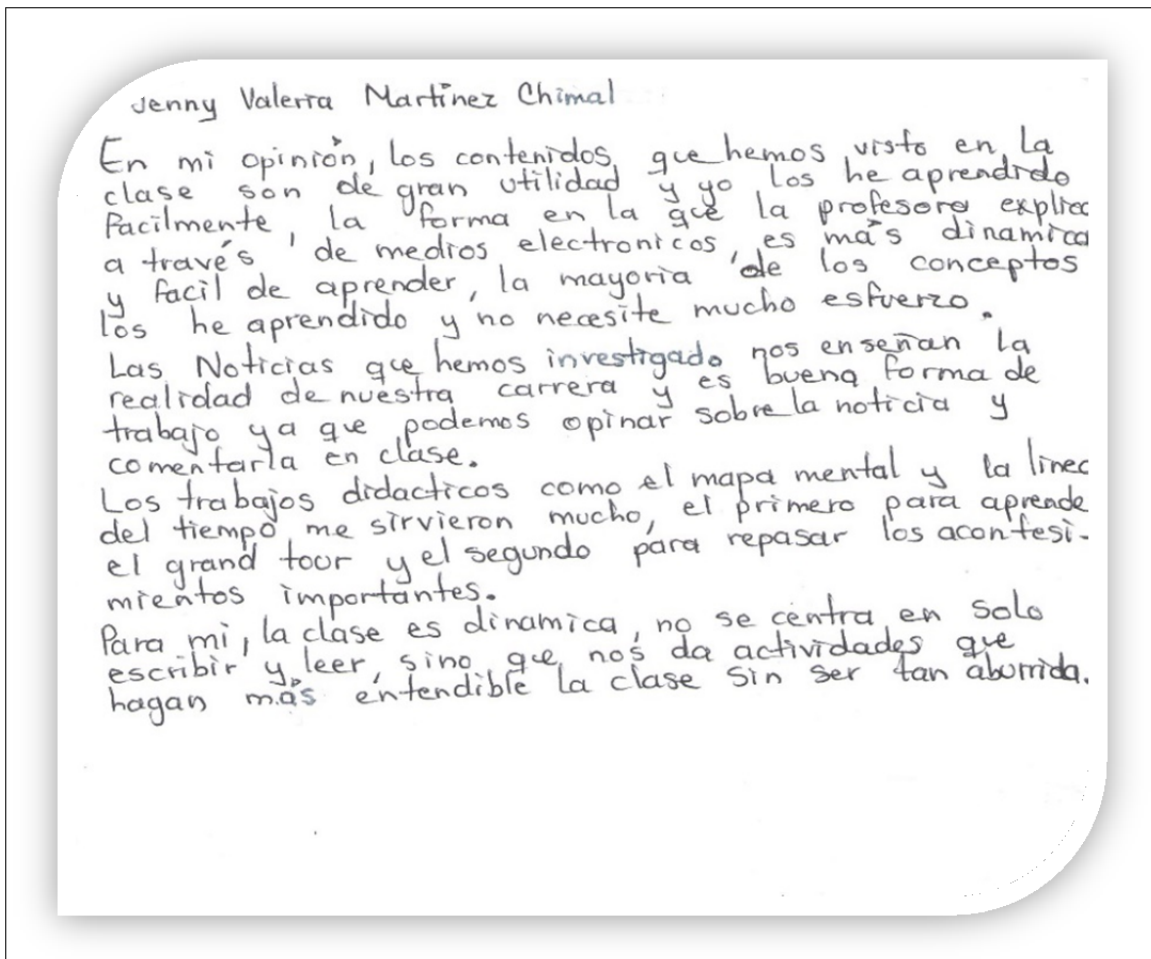 Jenny Valeria Martínez Chimal
En mi opinión, los contenidos que hemos visto en la
clase son de gran utilidad y yo los he aprendido
facilmente, la forma en la que la profesora explica
a través de medios electronicos, es más dinamica
y facil de aprender, la mayoria de los conceptos
los he aprendido y no necesite mucho esfuerzo.
Las Noticias que hemos investigado nos enseñan la
realidad de nuestra carrera y es buena forma de
trabajo ya que podemos opinar sobre la noticia y
comentarla en clase.
Los trabajos didacticos como el mapa mental y la linea
del tiempo me sirvieron mucho, el primero para aprende
el grand tour y el segundo para repasar los acontesi-
mientos importantes.
Para mi, la clase es dinamica, no se centra en solo
escribir y leer, sino que nos da actividades que
hagan más entendible la clase sin ser tan aburrida.